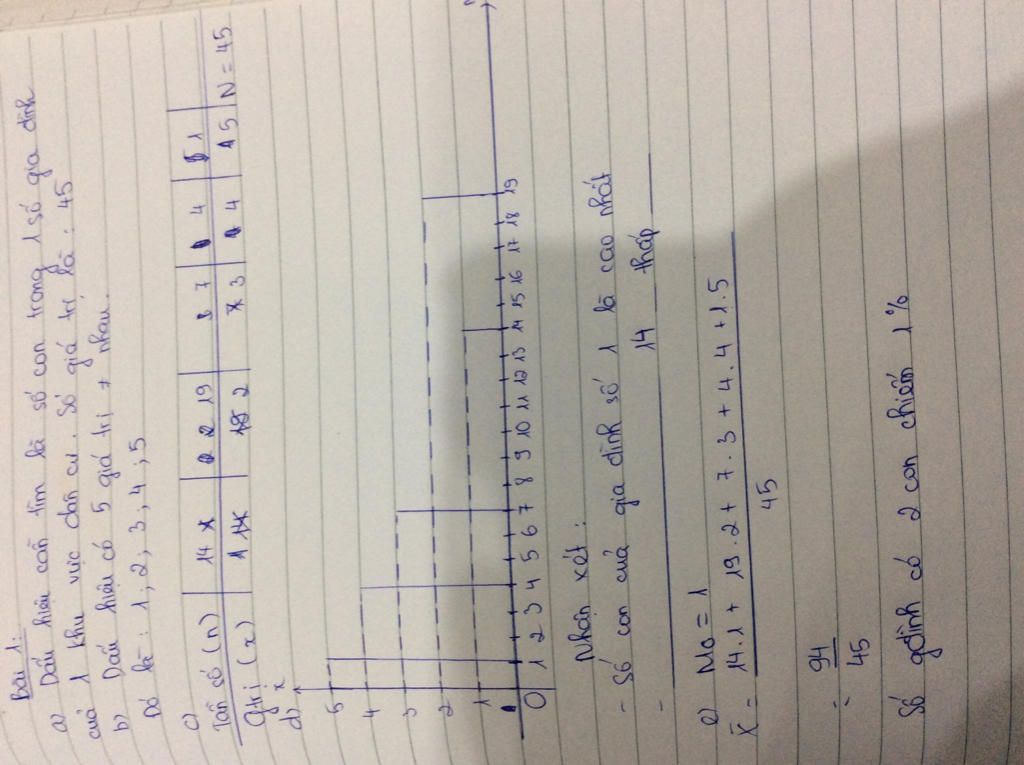 Bài 1:
a) Dấu hiệu cần tìm là số con trong 1 số gia đình
của 1 khu vực dân cư. Số giá trị là : 45
b) Dấu hiệu có 5 giá trị ≠ nhau.
Đó là : 1 ; 2 ; 3 ; 4 ; 5
c)
Tần số (n) | 14 | 19 | 7 | 4 | 1
Gtrị (x) | 1 | 2 | 3 | 4 | 5 | N = 45
d) x
5
4
3
2
1
O 1 2 3 4 5 6 7 8 9 10 11 12 13 14 15 16 17 18 19
Nhận xét :
- Số con của gia đình số 1 là cao nhất
- 14 thấp
e) Mo = 1
X = 14.1 + 19.2 + 7.3 + 4.4 + 1.5
45
= 94
45
Số gđình có 2 con chiếm 1%